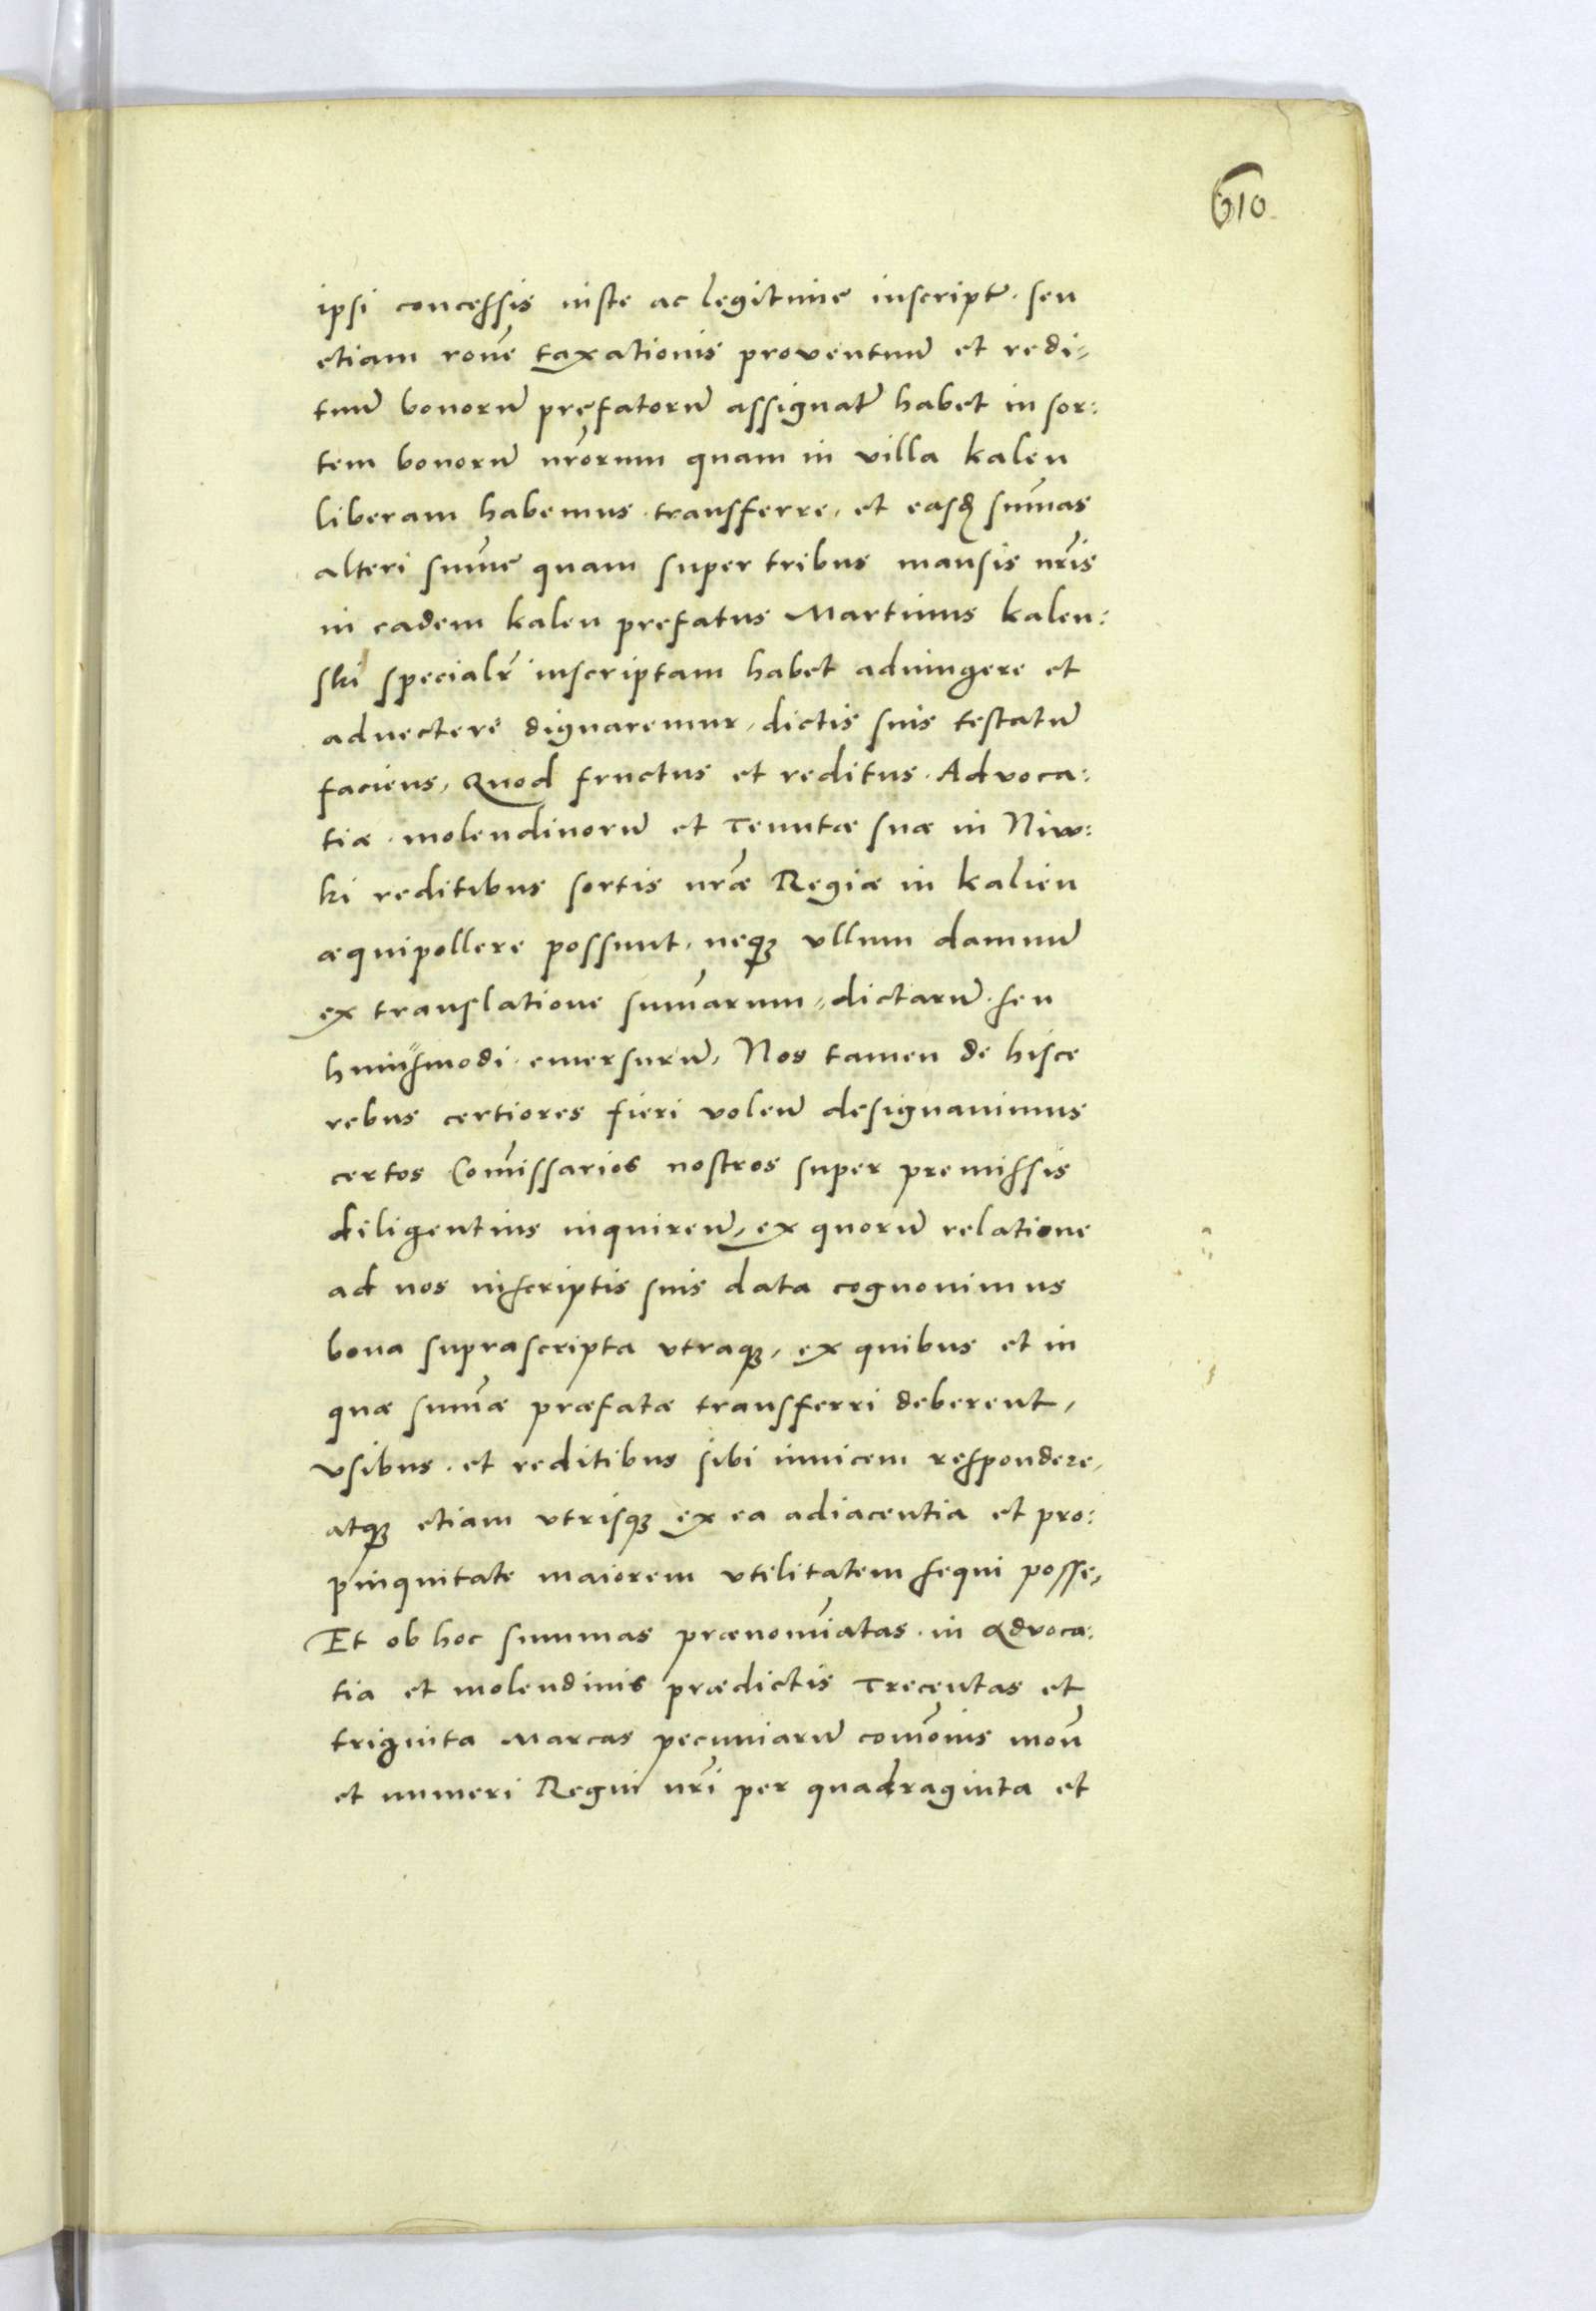 610
ipsi concessis iuste ac legitime inscript̃. seu
etiam rone͂ taxationis proventuu͂ et redi⸗
tuu͂ bonoru͂ pręfatoru͂ assignat̃ habet in sor:
tem bonoru͂ nr̃orum quam in villa kalen
liberam habemus. transferre, et easq̃ sum̃as
alteri sum̃e quam super tribus mansis nr̃is
in eadem kalen prefatus Martinus kalen:
ski specialr̃ inscriptam habet adiungere et
adnectere dignaremur, dictis suis testatu͂
faciens, Quod fructus et reditus. Advoca:
tiæ. molendinoru͂ et Tenutæ suæ in Niw:
ki reditibus sortis nr̃æ Regiæ in kalien
æquipollere possunt, neqȝ vllum damnu͂
ex translatione sum̃arum, dictaru͂. seu
huiusmodi. emersuru͂, Nos tamen de hisce
rebus certiores fieri volen͂ designauimus
certos Com̃issarios nostros super premissis
diligentius inquiren͂, ex quoru͂ relatione
ad nos inscriptis suis data cognouimus
bona suprascripta vtraqȝ, ex quibus et in
quæ sum̃æ præfatæ transferri deberent,
vsibus. et reditibus sibi inuicem respondere,
atqȝ etiam vtrisqȝ ex ea adiacentia et pro:
pinquitate maiorem vtilitatem sequi posse,
Et ob hoc summas prænomĩatas. in Advoca:
tia et molendinis prædictis Trecentas et
triginta Marcas pecuniaru͂ com̃onis mon͂
et numeri Regni nr̃i per quadraginta et